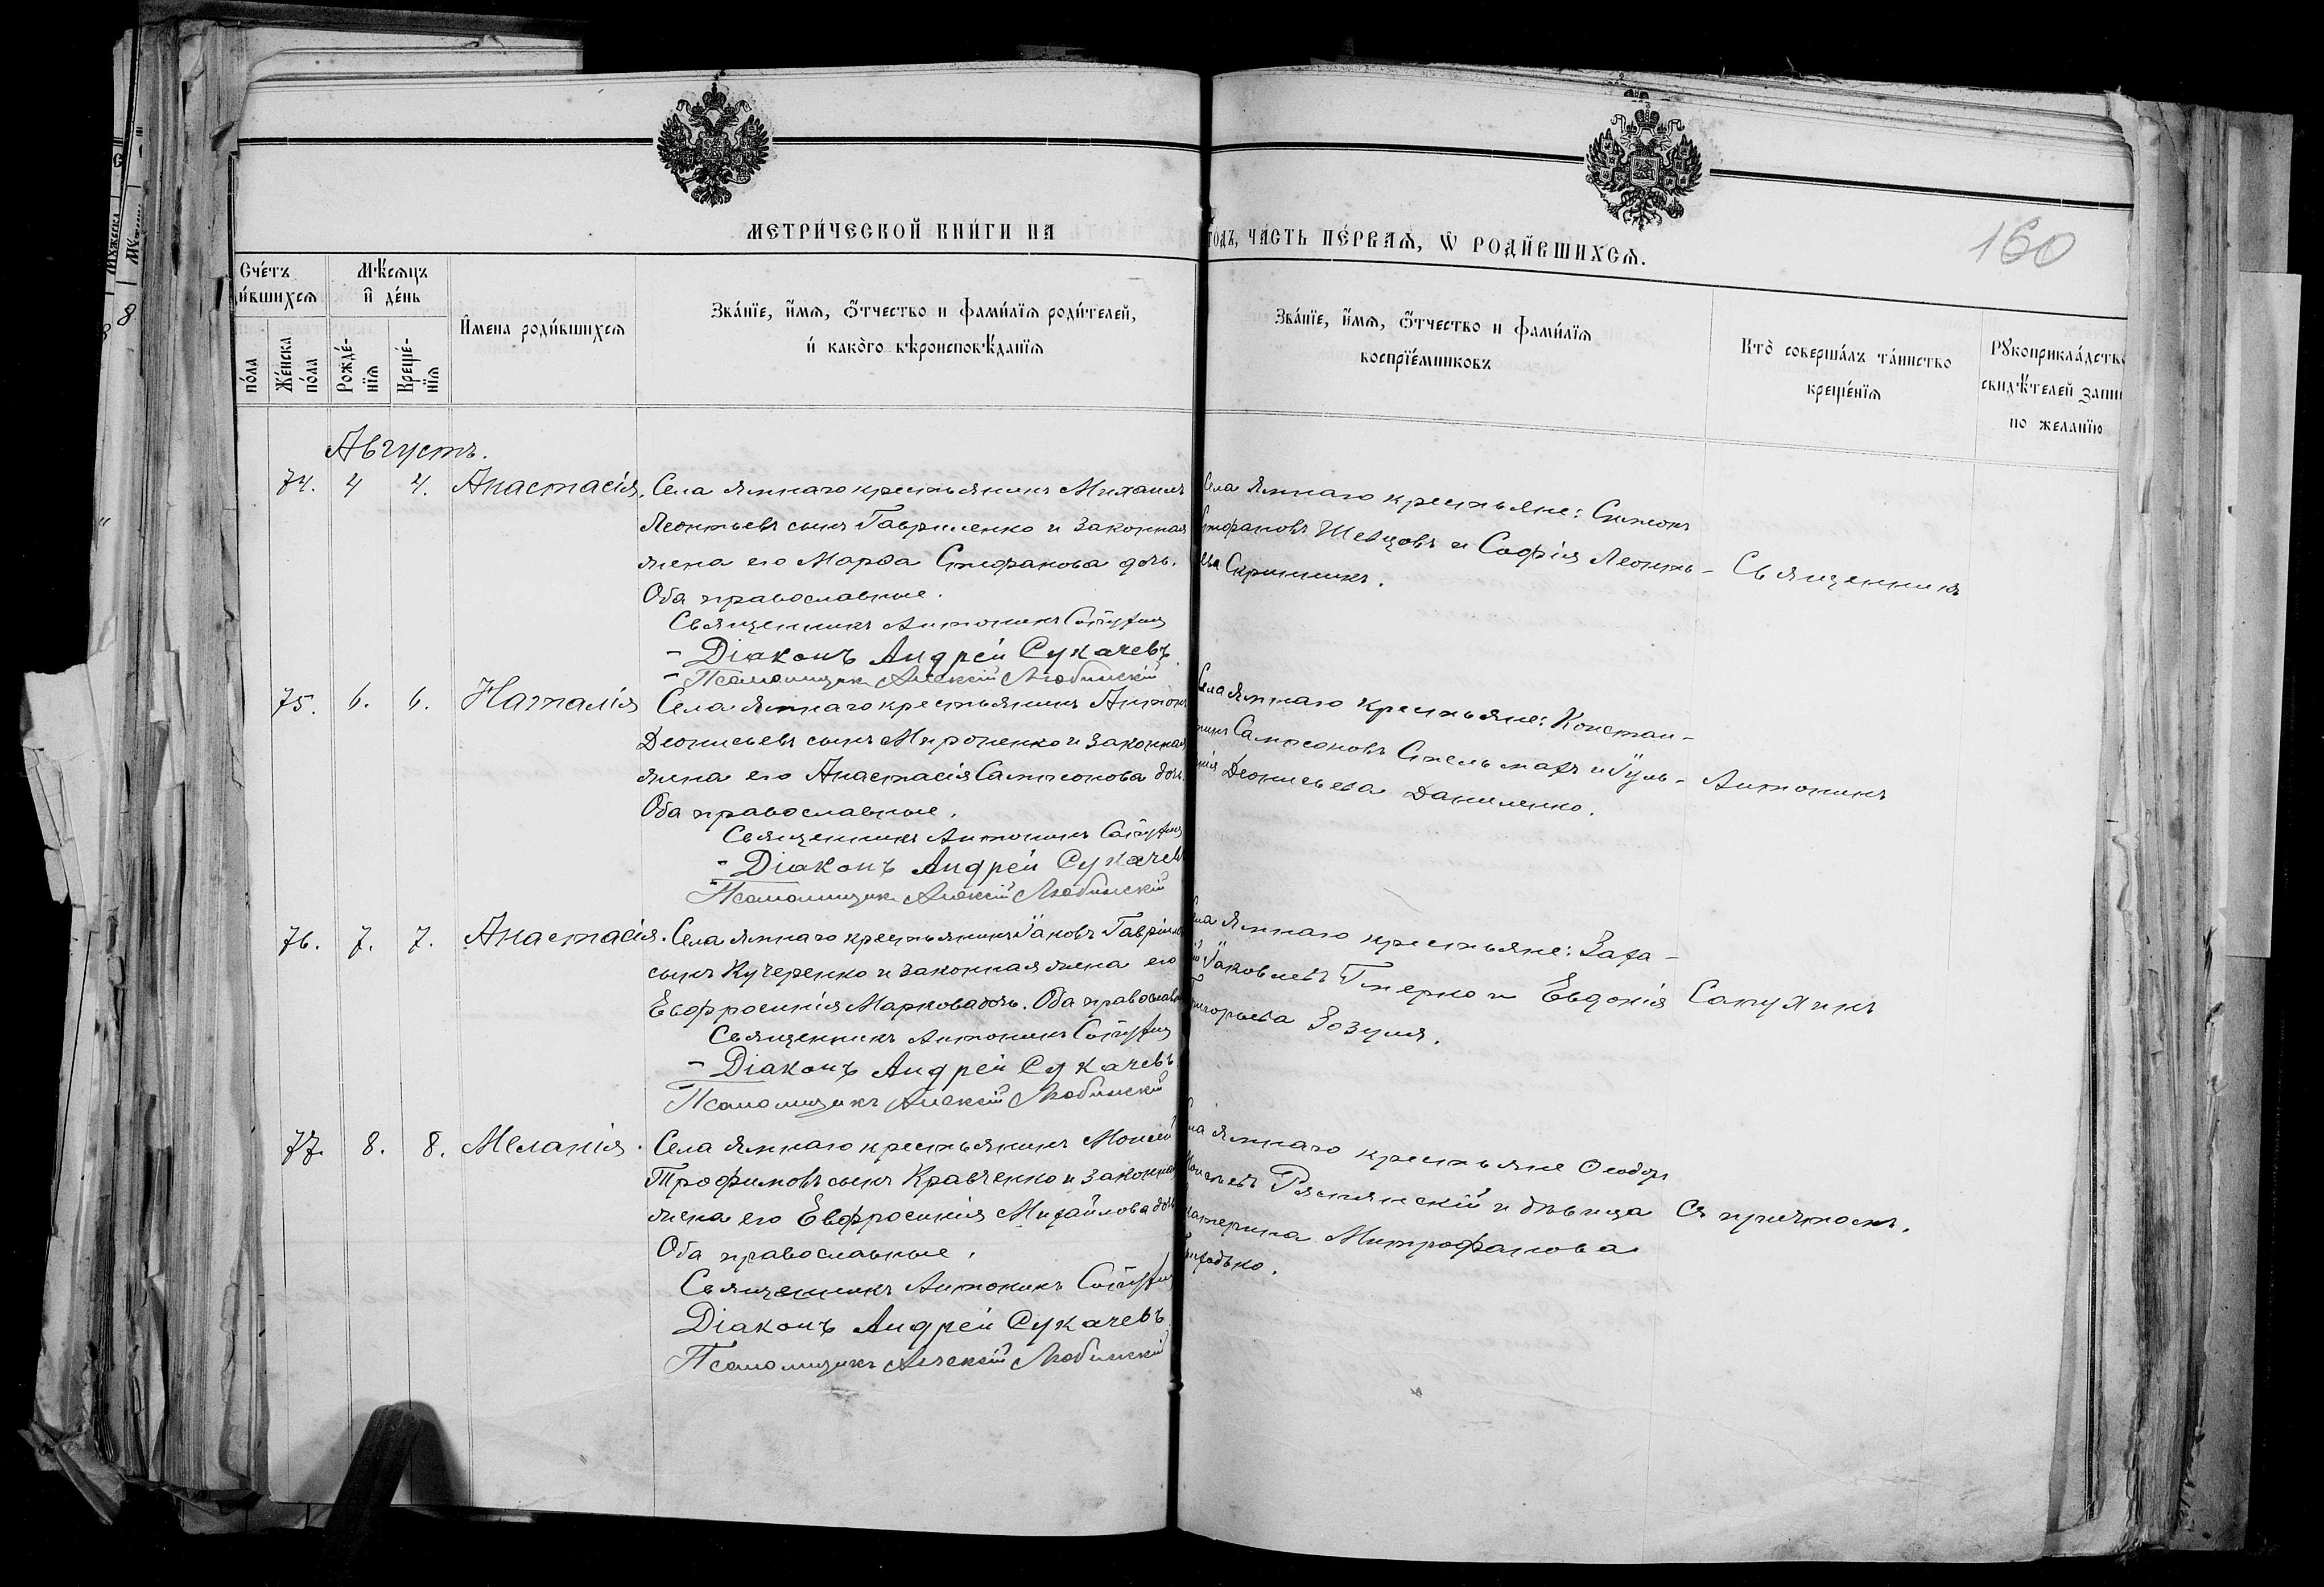 МЕТРИ́ЧЕСКОЙ КНИ́ГИ НА
ГОДЪ, ЧА́СТЬ ПЕ́РВАЯ, Ѡ҆ РОДИ́ВШИХСЯ.
160
Сче́тъ
и́вшихся
по́ла
Же́нска по́ла
Мѣ́сяцъ и҆ де́нь
Рожде́-нїя
Креще́-нїя
И҆мена роди́вшихся
Зва́нїе, и҆́мя, ѻ҆́тчество и фами́лїя роди́телей,
и҆ како́го вѣроисповѣ́данїя
Зва́нїе, и҆́мя, ѻ҆́тчество и фами́лїя
воспрїе́мниковъ
Кто̀ соверша́лъ та́инство
креще́нїя
Рꙋкоприкла́дство
свидѣ́телей запи
по жела́нїю
Августъ.
74. 4 4. Анастасія.
Села Ямнаго крестьянинъ Михаилъ
Леонтьевъ сынъ Гавриленко и законная
жена его Марѳа Стефанова дочь.
Оба православные.
Священникъ Антонинъ
- Діаконъ Андрей Сукачевъ.
- Псаломщикъ Алексій Любинскій
Села Ямнаго крестьяне: Симеонъ
Стефановъ Шевцовъ и Софія Леонть-
ева Скринникъ.
Священникъ
75. 6. 6. Наталія
Села Ямнаго крестьянинъ Антонъ
Деонисьевъ сынъ Мироненко и законная
жена его Анастасія Сампсонова дочь.
Оба православные.
Священникъ Антонинъ
- Діаконъ Андрей Сукачевъ
- Псаломщикъ Алексій Любинскій
Села Ямнаго крестьяне: Констан-
тинъ Сампсоновъ Стельмахъ и Іуль-
анія Деонисьева Даниленко.
Антонинъ
76. 7. 7. Анастасія.
Села Ямнаго крестьянинъ Іаковъ Гавріиловъ
сынъ Кучеренко и законная жена его
Евфросинія Маркова дочь. Оба православные
Священникъ Антонинъ
- Діаконъ Андрей Сукачевъ.
Псаломщикъ Алексій Любинскій
Села Ямнаго крестьяне: Заха-
рій Іаковлевъ и Евдокія
Григорьева Зозуля.
77. 8. 8. Меланія.
Села Ямнаго крестьянинъ Моисей
Трофимовъ сынъ Кравченко и законная
жена его Евфросинія Михайлова дочь
Оба православные.
Священникъ Антонинъ
Діаконъ Андрей Сукачевъ
Псаломщикъ Алексій Любинскій
Села Ямнаго крестьяне Ѳеодоръ
и дѣвица
Екатерина Митрофанова
Съ причтомъ.